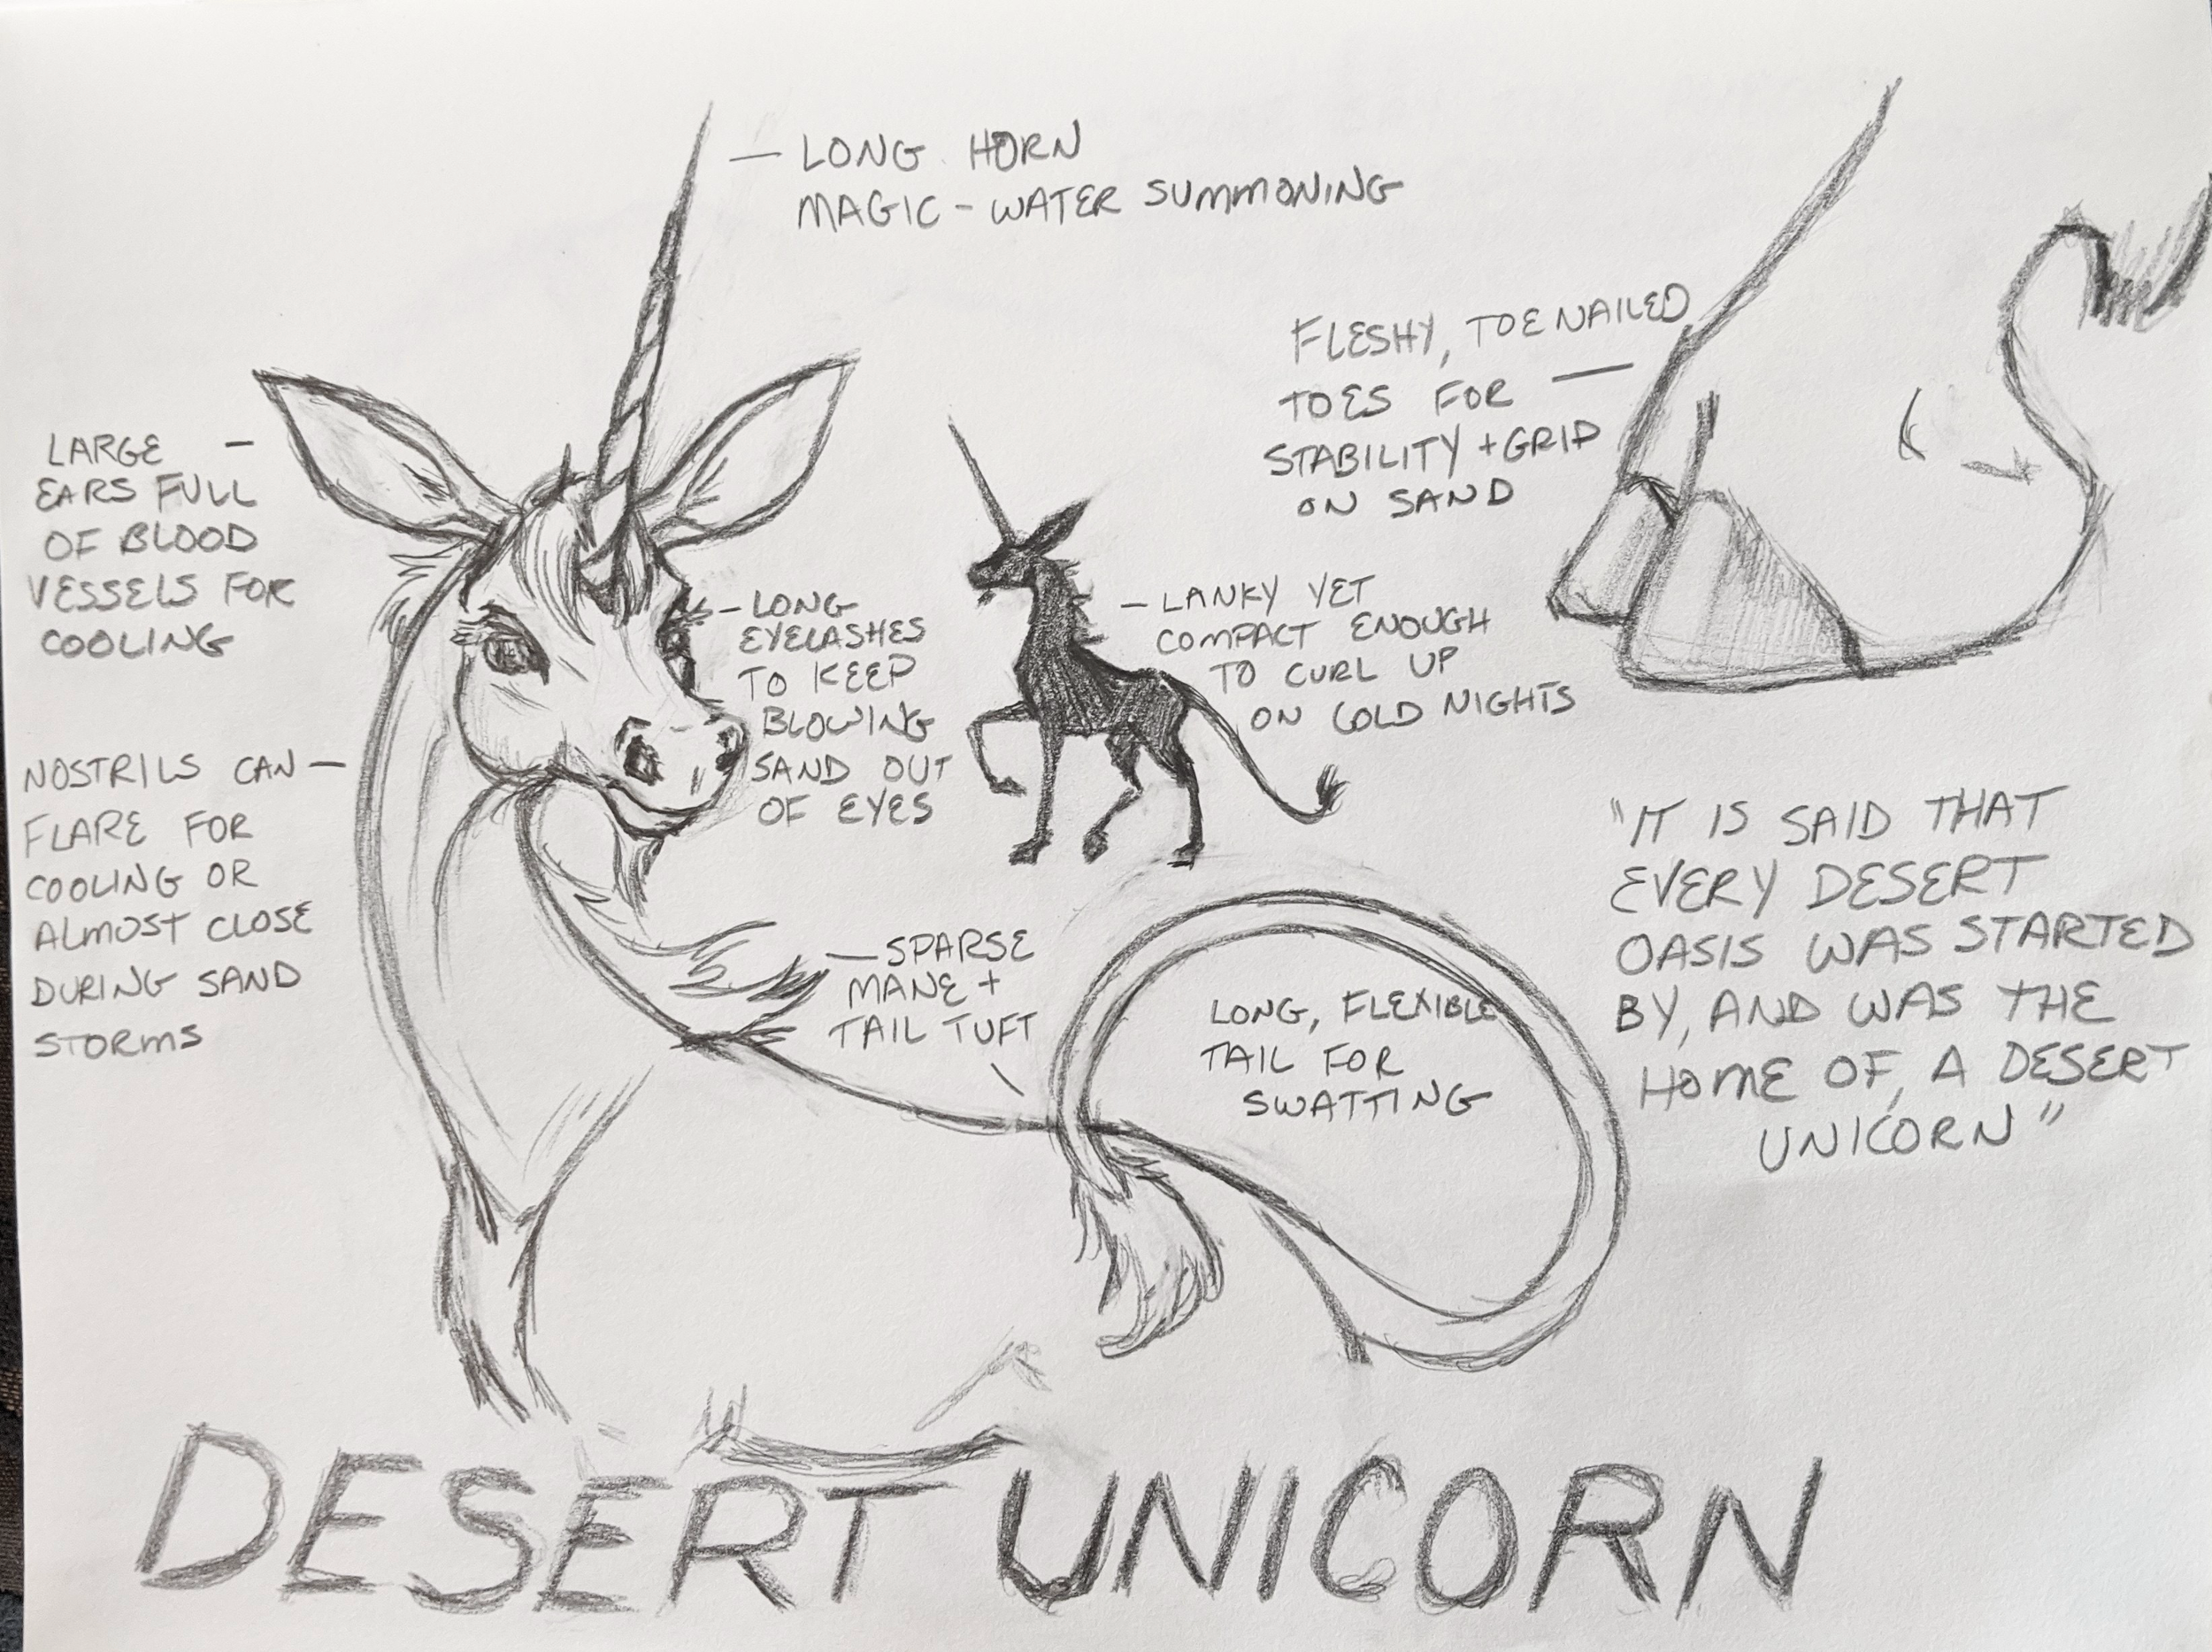 — LONG HORN
MAGIC - WATER SUMMONING
LARGE —
EARS FULL
OF BLOOD
VESSELS FOR
COOLING
NOSTRILS CAN —
FLARE FOR
COOLING OR
ALMOST CLOSE
DURING SAND
STORMS
— LONG
EYELASHES
TO KEEP
BLOWING
SAND OUT
OF EYES
— LANKY YET
COMPACT ENOUGH
TO CURL UP
ON COLD NIGHTS
FLESHY, TOENAILED
TOES FOR —
STABILITY + GRIP
ON SAND
— SPARSE
MANE +
TAIL TUFT
LONG, FLEXIBLE
TAIL FOR
SWATTING
"IT IS SAID THAT
EVERY DESERT
OASIS WAS STARTED
BY, AND WAS THE
HOME OF, A DESERT
UNICORN"
DESERT UNICORN